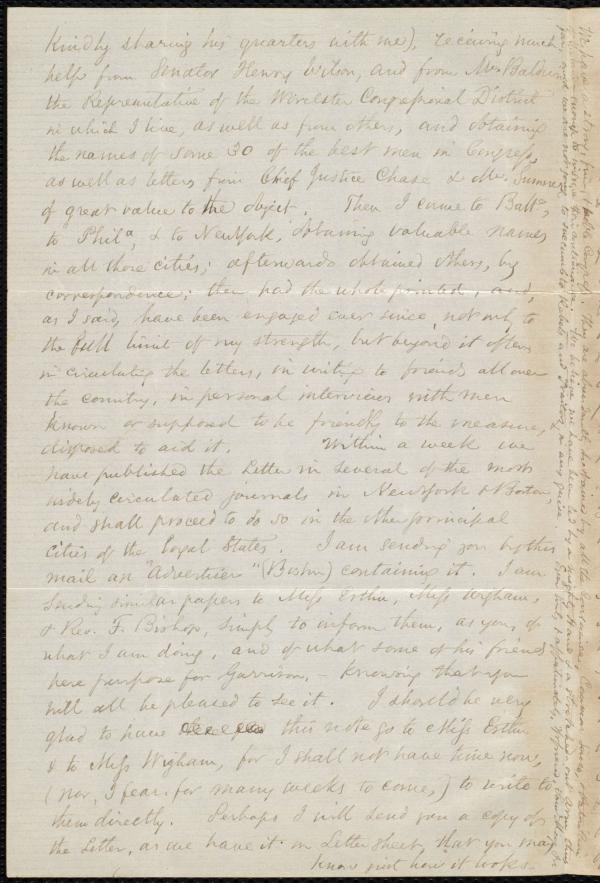 kindly sharing his quarters with me), receiving much
help from Senator Henry Wilson, and from Mr. Baldwin
the Representative of the Worcester Congressional District
in which I live, as well as from others, and obtaining
the names of some 30 of the best men in Congress,
as well as letters from Chief Justice Chase & Mr. Sumner
of great value to the object. Then I came to Balto,
to Phila, & to New York, obtaining valuable names
in all those cities; afterwards obtained others, by
correspondence; then had the whole printed; and,
as I said, have been engaged ever since, not only to
the full limit of my strength, but beyond it often
in circulating the letters, in writing to friends all over
the country, in personal interviews with men
known or supposed to be friendly to the measure,
disposed to aid it. Within a week we
have published the Letter in several of the most
widely circulated journals in New York & Boston,
and shall proceed to do so in the other principal
cities of the loyal States. I am sending you by this
mail an "Advertiser" (Boston) containing it. I am
sending similar papers to Miss Estlin, Miss Wigham,
& Rev. F. Bishop, simply to inform them, as you, of
what I am doing, and of what some of his friends
here purpose for Garrison, – knowing that you
will all be pleased to see it. I should be very
glad to have this note go to Miss Estlin
& to Miss Wigham, for I shall not have time now,
(nor, I fear, for many weeks to come,) to write to
them directly. Perhaps I will send you a copy of
the Letter, as we have it in Letter sheet, that you may
know just how it looks.
We have a strong firm, Congress